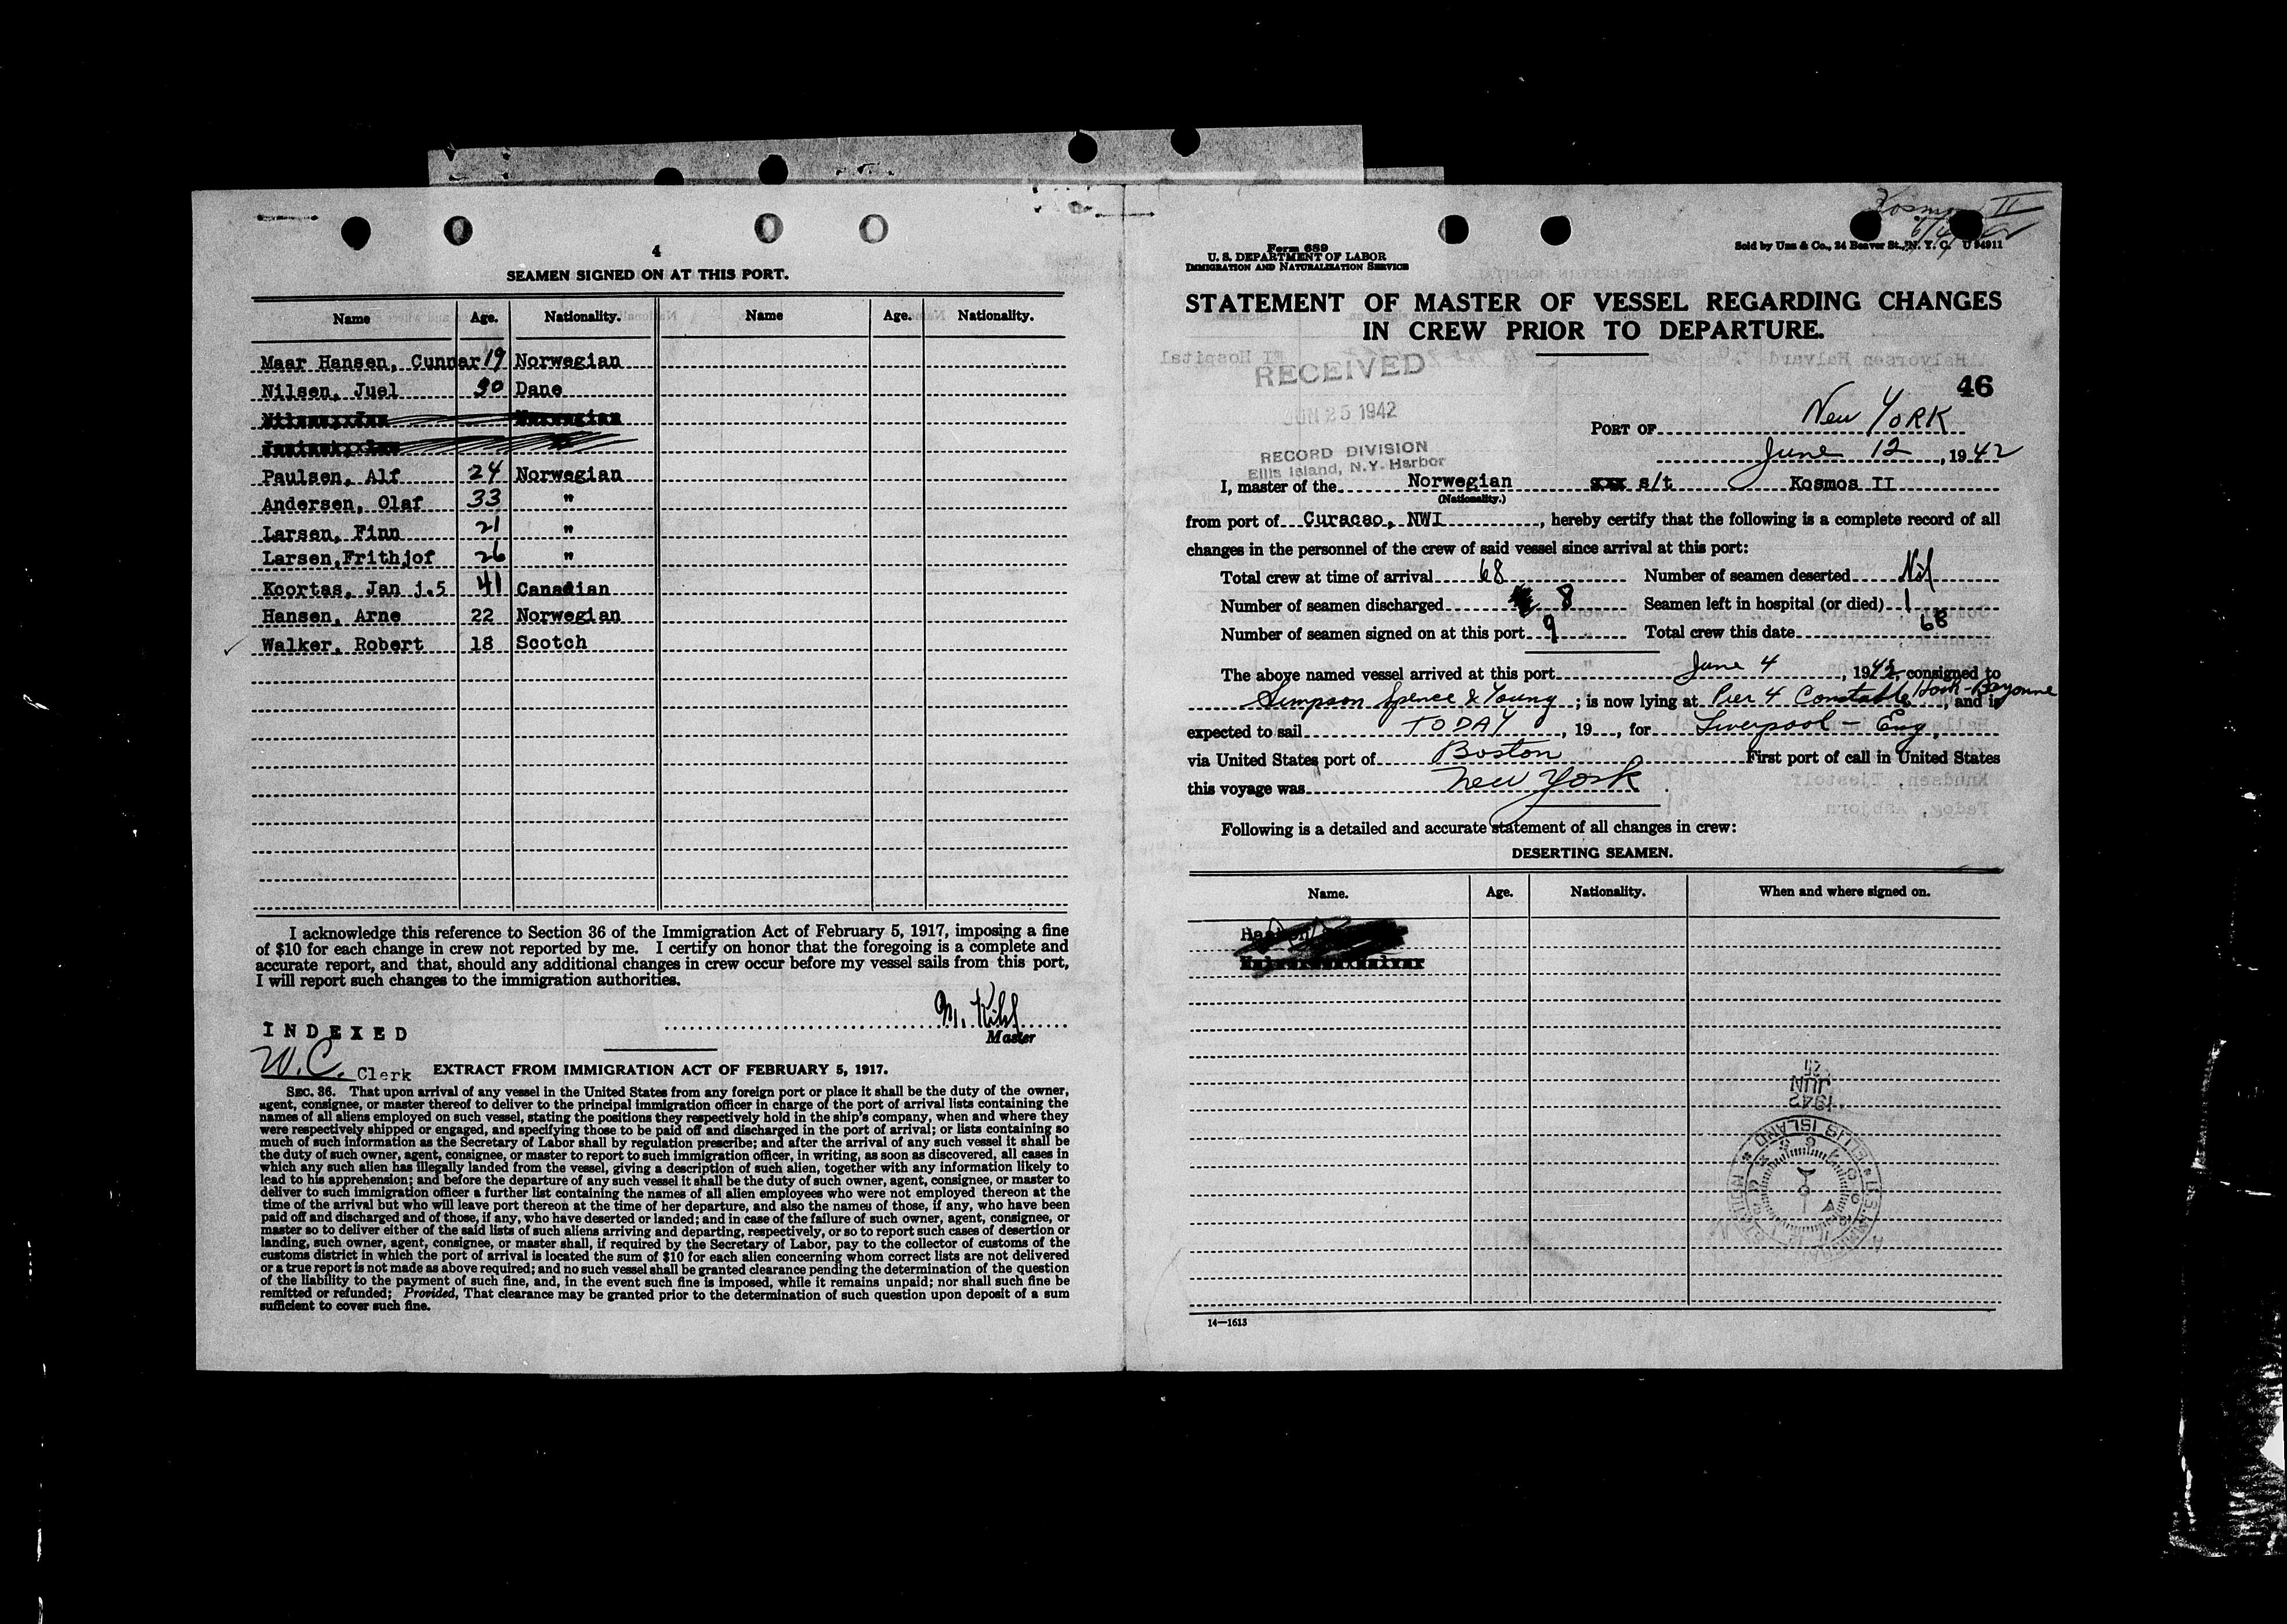 4
SEAMEN SIGNED ON AT THIS PORT.
Name Age. Nationality. Name Age. Nationality.
Maar Hansen, Cunnar 19 Norwegian
Nilsen, Juel 30 Dane
Paulsen, Alf 24 Norwegian
Andersen, Olaf 33 "
Larsen, Finn 21 "
Larsen,Frithjof 26 "
Koortas, Jan j.5 41 Canadian
Hansen, Arne 22 Norwegian
Walker, Robert 18 Scotch
I acknowledge this reference to Section 36 of the Immigration Act of February 5, 1917, imposing a fine
of $10 for each change in crew not reported by me. I certify on honor that the foregoing is a complete and
accurate report, and that, should any additional changes in crew occur before my vessel sails from this port,
I will report such changes to the immigration authorities.
M.
Master
INDEXED
W.C. Clerk
EXTRACT FROM IMMIGRATION ACT OF FEBRUARY 5, 1917.
SEC. 36. That upon arrival of any vessel in the United States from any foreign port or place it shall be the duty of the owner,
agent, consignee, or master thereof to deliver to the principal immigration officer in charge of the port of arrival lists containing the
names of all aliens employed on such vessel, stating the positions they respectively hold in the ship's company, when and where they
were respectively shipped or engaged, and specifying those to be paid off and discharged in the port of arrival; or lists containing so
much of such information as the Secretary of Labor shall by regulation prescribe; and after the arrival of any such vessel it shall be
the duty of such owner, agent, consignee, or master to report to such immigration officer, in writing, as soon as discovered, all cases in
which any such alien has illegally landed from the vessel, giving a description of such alien, together with any information likely to
lead to his apprehension; and before the departure of any such vessel it shall be the duty of such owner, agent, consignee, or master to
deliver to such immigration officer a further list containing the names of all alien employees who were not employed thereon at the
time of the arrival but who will leave port thereon at the time of her departure, and also the names of those, if any, who have been
paid off and discharged and of those, if any, who have deserted or landed; and in case of the failure of such owner, agent, consignee, or
master so to deliver either of the said lists of such aliens arriving and departing, respectively, or so to report such cases of desertion or
landing, such owner, agent, consignee, or master shall, if required by the Secretary of Labor, pay to the collector of customs of the
customs district in which the port of arrival is located the sum of $10 for each alien concerning whom correct lists are not delivered
or a true report is not made as above required; and no such vessel shall be granted clearance pending the determination of the question
of the liability to the payment of such fine, and, in the event such fine is imposed, while it remains unpaid; nor shall such fine be
remitted or refunded; Provided, That clearance may be granted prior to the determination of such question upon deposit of a sum
sufficient to cover such fine.
Kosmos II
Form 689
U. S. DEPARTMENT OF LABOR
IMMIGRATION AND NATURALIZATION SERVICE
Sold by Unz & Co., 24 Beaver St., N. Y. C. U 94911
STATEMENT OF MASTER OF VESSEL REGARDING CHANGES
IN CREW PRIOR TO DEPARTURE.
RECEIVED
JUN 25 1942
RECORD DIVISION
Ellis Island, N.Y. Harbor
46
PORT OF New YORK
June 12, 1942
I, master of the Norwegian xxx s/t Kosmos II
(Nationality.)
from port of Curacao, NWI, hereby certify that the following is a complete record of all
changes in the personnel of the crew of said vessel since arrival at this port:
Total crew at time of arrival 68 Number of seamen deserted Nil
Number of seamen discharged 8 Seamen left in hospital (or died) 1
Number of seamen signed on at this port 9 Total crew this date 68
The above named vessel arrived at this port June 4, 1942, consigned to
Simpson Spence & Young; is now lying at Pier 4 Constable Hook-Bayonne, and is
expected to sail TODAY, 19, for Liverpool - Eng,
via United States port of Boston First port of call in United States
this voyage was New York.
Following is a detailed and accurate statement of all changes in crew:
DESERTING SEAMEN.
Name. Age. Nationality. When and where signed on.
1942
JUN
25
ELLIS ISLAND
14—1613